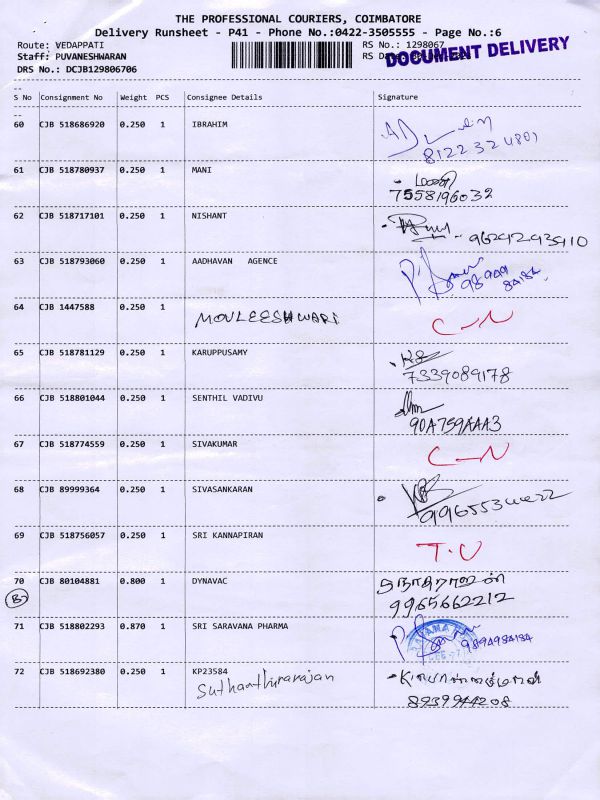 THE PROFESSIONAL COURIERS, COIMBATORE
Delivery Runsheet - P41 - Phone No.:0422-3505555 - Page No.:6
Route: VEDAPPATI
RS No.: 1298067
Staff: PUVANESHWARAN
RS Da
DOCUMENT DELIVERY
DRS No.: DCJB129806706
S No Consignment No Weight PCS Consignee Details Signature
60 CJB 518686920 0.250 1 IBRAHIM
8122324801
61 CJB 518780937 0.250 1 MANI மணி
7558196032
62 CJB 518717101 0.250 1 NISHANT
9629293910
63 CJB 518793060 0.250 1 AADHAVAN AGENCE
64 CJB 1447588 0.250 1 MOULEESHWARI C-N
65 CJB 518781129 0.250 1 KARUPPUSAMY
7339089178
66 CJB 518801044 0.250 1 SENTHIL VADIVU
67 CJB 518774559 0.250 1 SIVAKUMAR C-N
68 CJB 89999364 0.250 1 SIVASANKARAN
69 CJB 518756057 0.250 1 SRI KANNAPIRAN T.U
70 CJB 80104881 0.800 1 DYNAVAC
B
9965662212
71 CJB 518802293 0.870 1 SRI SARAVANA PHARMA
72 CJB 518692380 0.250 1 KP23584
Suthanthirarajan
8939944208